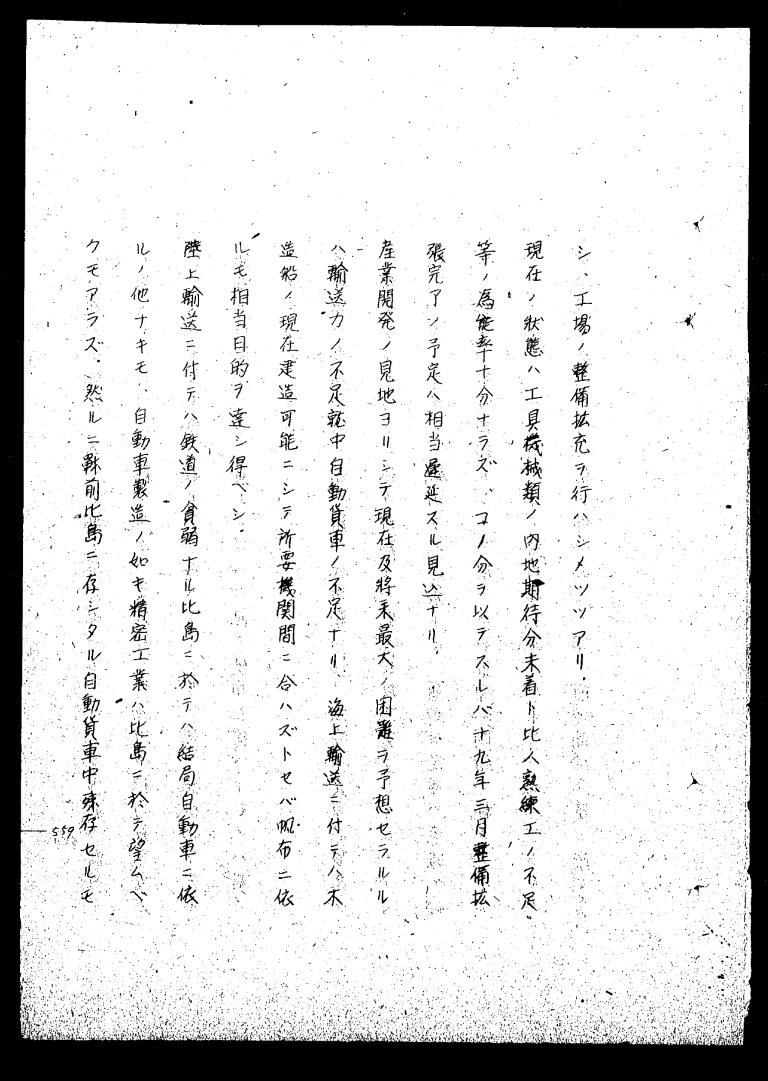 シ、工場ノ整備拡充ヲ行ハシメツツアリ。
現在ノ状態ハ工具機械類ノ内地期待分未着ト比人熟練工ノ不足。
等ノ為能率十分ナラズ、コノ分ヲ以テスレバ十九年三月整備拡
張完アノ予定ハ相当遅延スル見込ナリ。
産業開発ノ見地ヨリシテ現在及将来最大ノ困難ヲ予想セラルル
ハ輸送力ノ不足就中自動貨車ノ不足ナリ、海上輸送ニ付テハ木
造船ノ現在建造可能ニシテ所要機関間ニ合ハズトセバ帆布ニ依
ルモ相当目的ヲ達シ得ベシ。
陸上輸送ニ付テハ鉄道ノ貧弱ナル比島ニ於テハ結局自動車ニ依
ルノ他ナキモ、自動車製造ノ如キ精密工業ハ比島ニ於テ望ムベ
クモアラズ。然ルニ戦前比島ニ存シタル自動貨車中残存セルモ
559